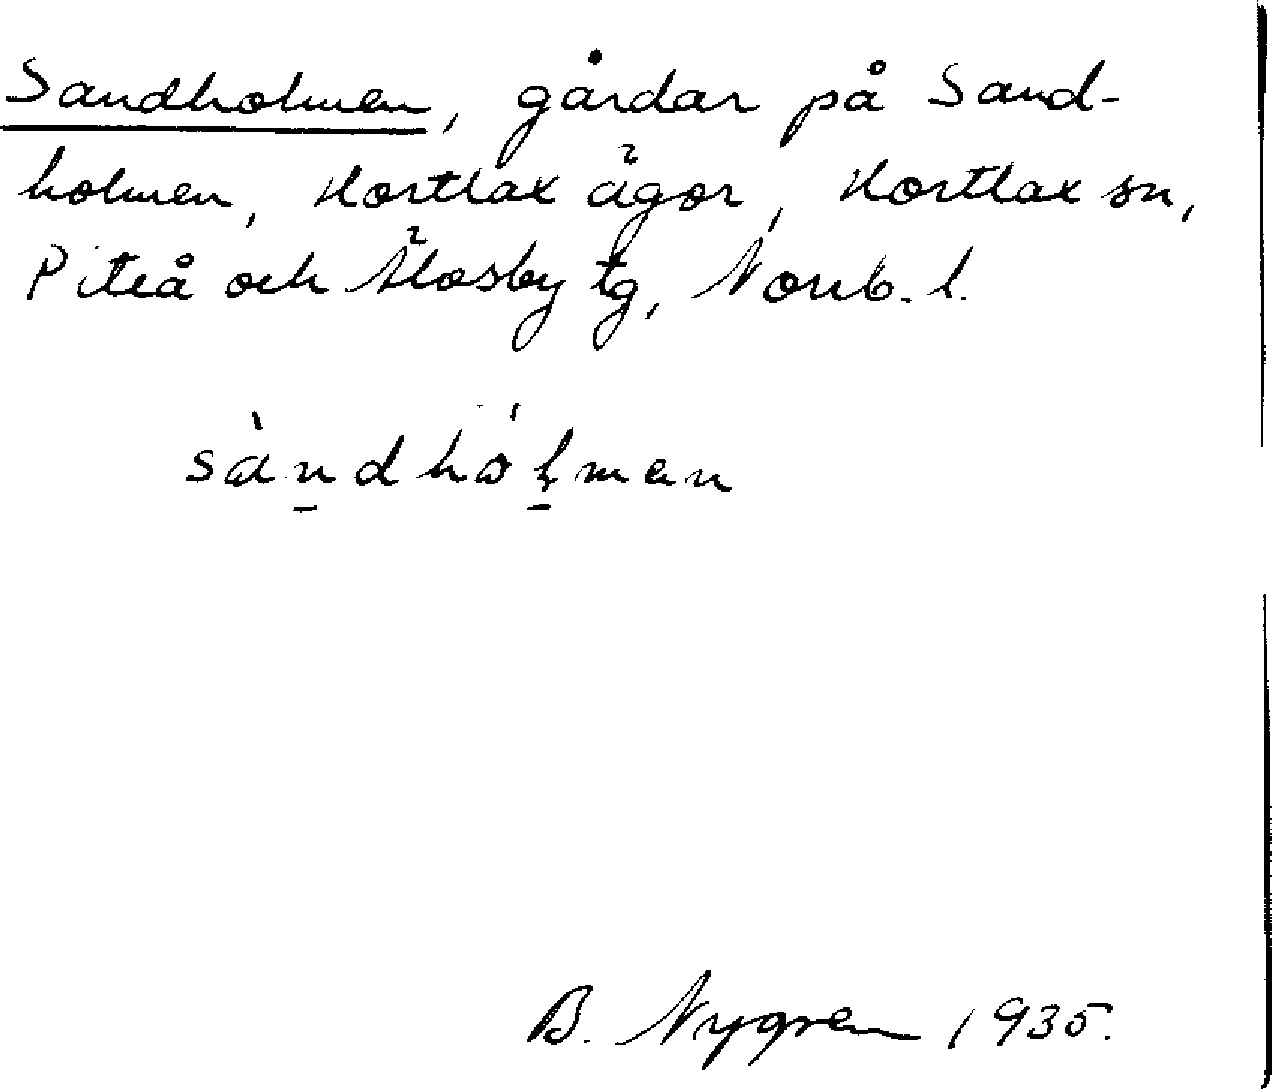 Sandholmen, gårdar på Sand-
holmen, Hortlax ägor, Hortlax sn,
Piteå och Älvsby tg, Norrb. l.
sàndhólmen
B. Nygren 1935.